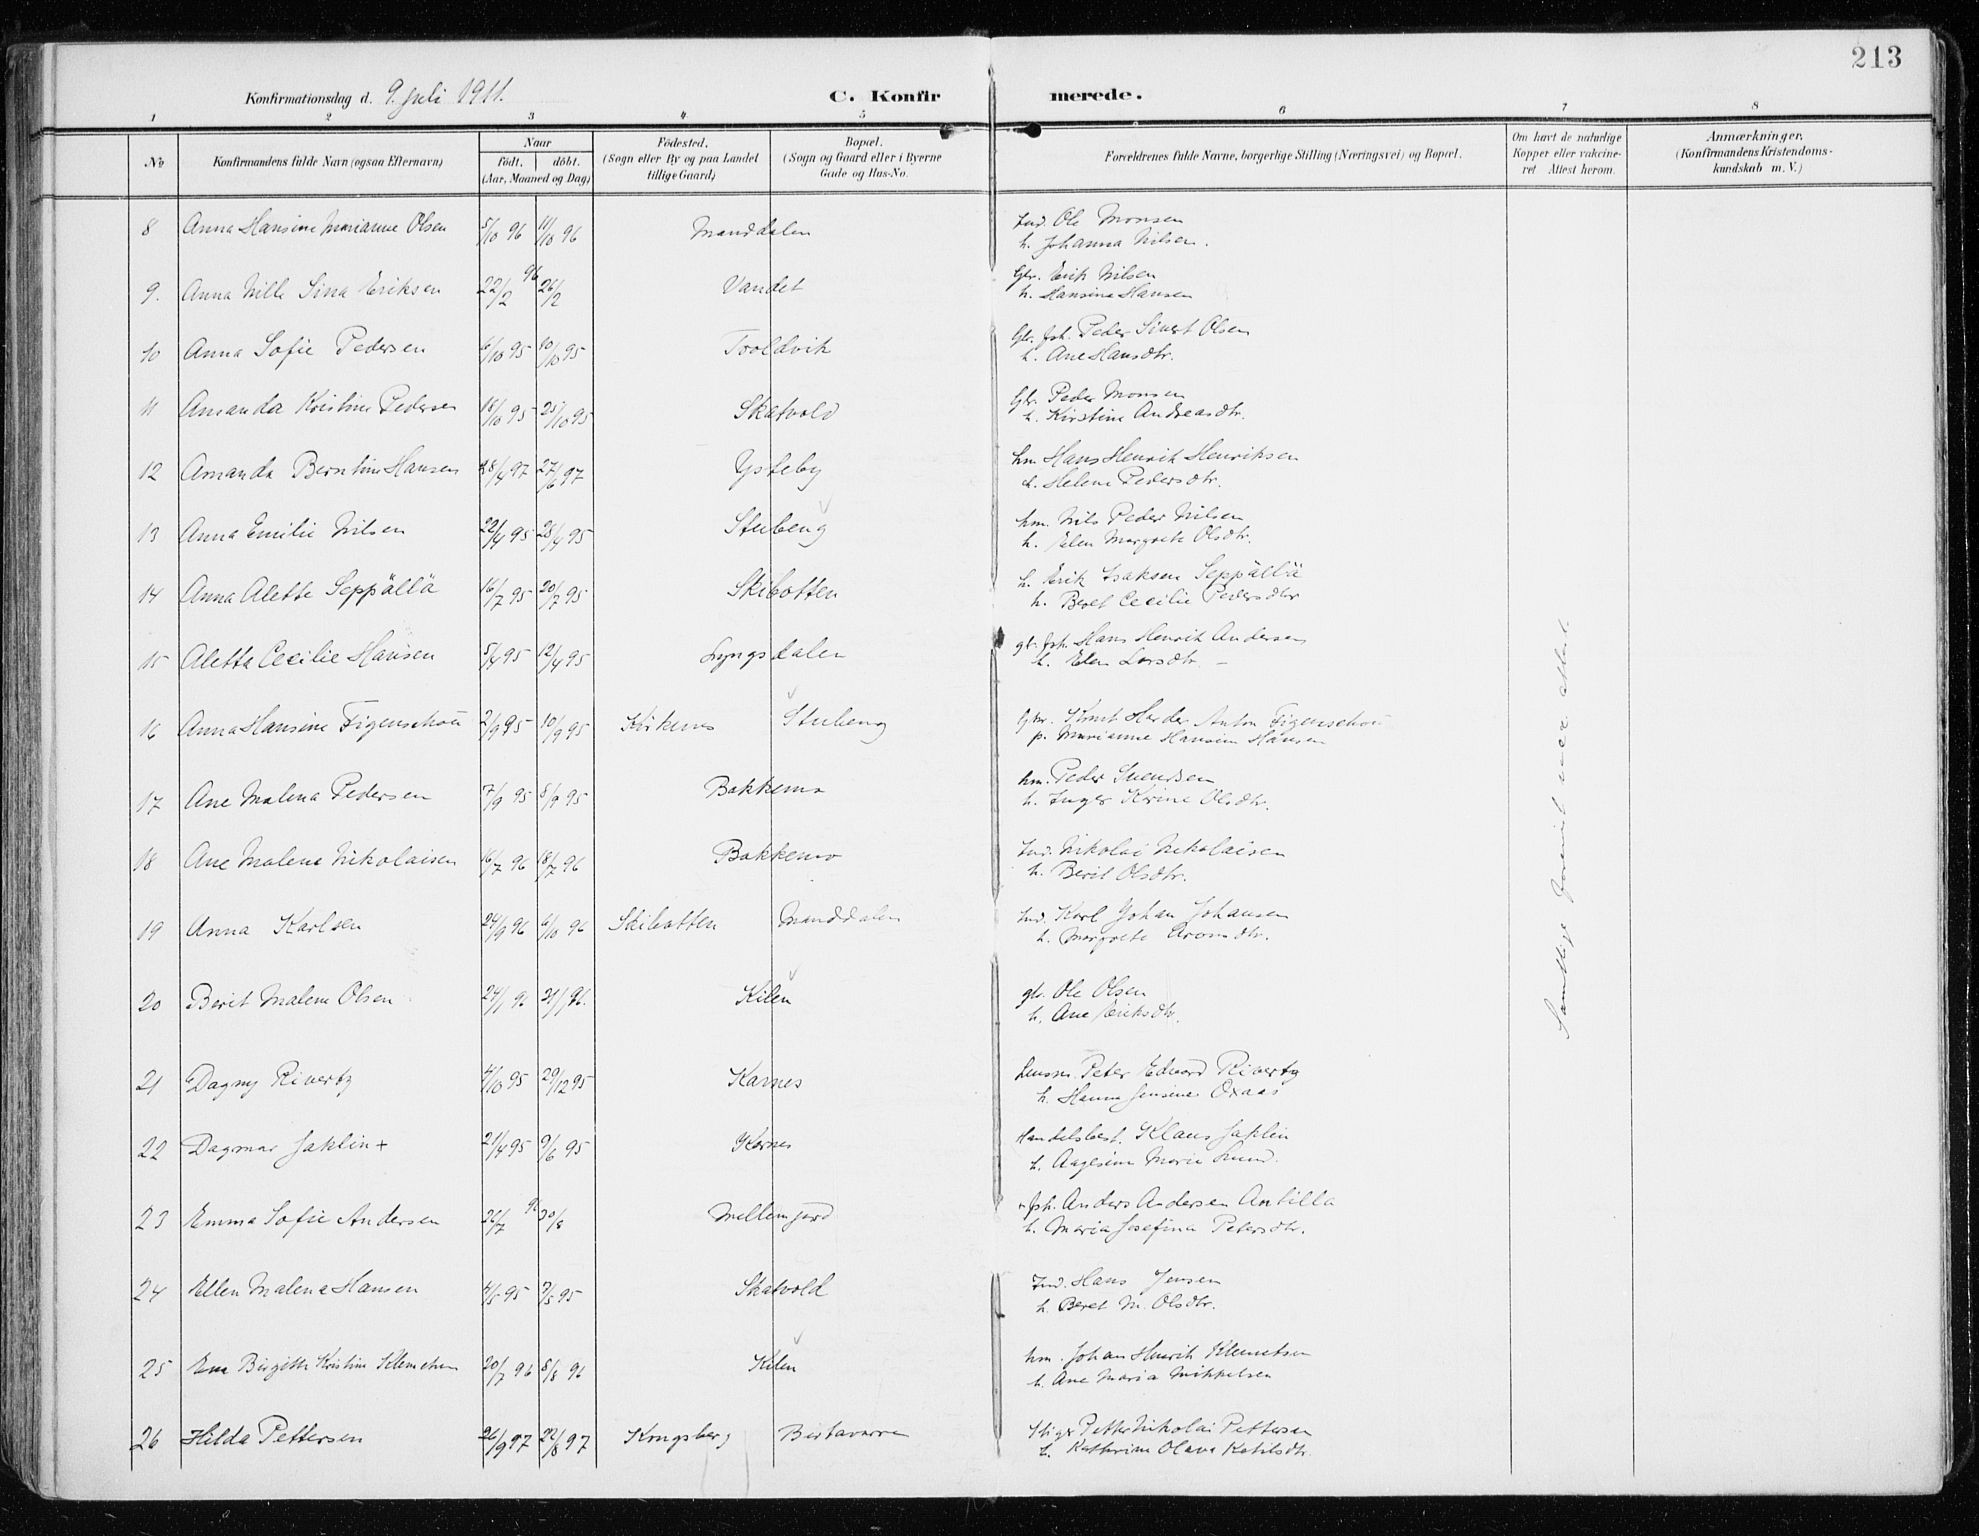 213
Konfirmationsdag d. 9. juli 1911.
C. Konfirmerede.
1 2 3 4 5 6 7 8
No
Konfirmandens fulde Navn (ogsaa Efternavn)
Naar
født. døbt.
(Aar, Maaned og Dag)
Fødested.
(Sogn eller By og paa Landet
tillige Gaard)
Bopæl.
(Sogn og Gaard eller i Byerne
Gade og Hus-No.
Forældrenes fulde Navne, borgerlige Stilling (Næringsvei) og Bopæl.
Om havt de naturlige
Kopper eller vakcine-
ret Attest herom.
Anmærkninger.
(Konfirmandens Kristendoms-
kundskab m. V.)
8 Anna Hansine Marianne Olsen 5/10 96 11/10 96 Manddalen Ind. Ole Monsen
h. Johanna Nilsen.
9. Anna Nille Sina Eriksen 22/2 96 26/2 Vandet Gbr. Erik Nilsen
h. Hansina Hansen
10 Anna Sofie Pedersen 6/10 95 10/10 95 Troldvik Gbr. fsh. Peder Sivert Olsen
h. Ane Hansdtr.
11 Amanda Kristine Pedersen 18/10 95 25/10 95 Skatvold Gbr. Peder Monsen
h. Kirstine Andreasdtr.
12 Amanda Berntine Hansen 28/4 97 27/6 97 Ysteby hm Hans Henrik Henriksen
h. Helene Pedersdtr.
13 Anna Emilie Nilsen 22/4 95 28/4 95 Stubeng hm. Nils Peder Nilsen
h. Elen Margrete Olsdtr.
14 Anna Alette Seppällä 16/7 95 20/7 95 Skibotten h. Erik Isaksen Seppällä
h. Beret Cecilie Pedersdtr
15 Aletta Cecilie Hansen 5/4 95 12/4 95 Lyngsdalen gbr. fsh. Hans Henrik Andersen
h. Elen Larsdtr. –
16 Anna Hansine Figenschou 2/9 95 10/9 95 Kirkenes Stubeng Knut Herder Anton Figenschou
p. Marianne Hansine Hansen
17 Ane Malena Pedersen 7/9 95 8/9 95 Bakkemo hm. Peder Svendsen
h. Inger Karine Olsdtr.
18 Ane Malene Nikolaisen 16/7 96 18/7 96 Bakkemo Ind. Nikolai Nikolaisen
h. Berit Olsdtr.
19 Anna Karlsen 24/9 96 6/10 96 Skibotten Manddalen Ind. Karl Johan Johansen
h. Margrete Aronsdtr.
20 Berit Malene Olsen 24/1 96 Kilen gbr. Ole Olsen
h. Ane Eriksdtr.
21 Dagny Riverts 4/10 95 29/12 95 Karnes Lensm. Peter Edvard Riverts
h. Hanna Jensine Oxaas
22 Dagmar Jaklin + 21/4 95 9/6 95 Karnes Handelsbest. Klaus Jaklin
h. Aagesine Marie Lund.
23 Emma Sofie Andersen 26/7 96 30/8 Mellemjord fsh. Anders Andersen Antilla
h. Maria Josefina Petersdtr.
24 Ellen Malena Hansen 4/5 95 7/5 95 Skatvold Ind. Hans Jensen
h. Beret M. Olsdtr.
25 Eva Birgitte Kristine Klemetsen 20/7 96 8/8 96 Kilen hm. Johan Henrik Klemetsen
h. Ane Maria Mikkelsen
26 Hilda Pettersen 26/9 97 22/8 97 Kongsberg Birtavarre Stiger Petter Nikolai Pettersen
h. Kathrine Olava Ketilsdtr.
Samtlige forevist vacc. attest.